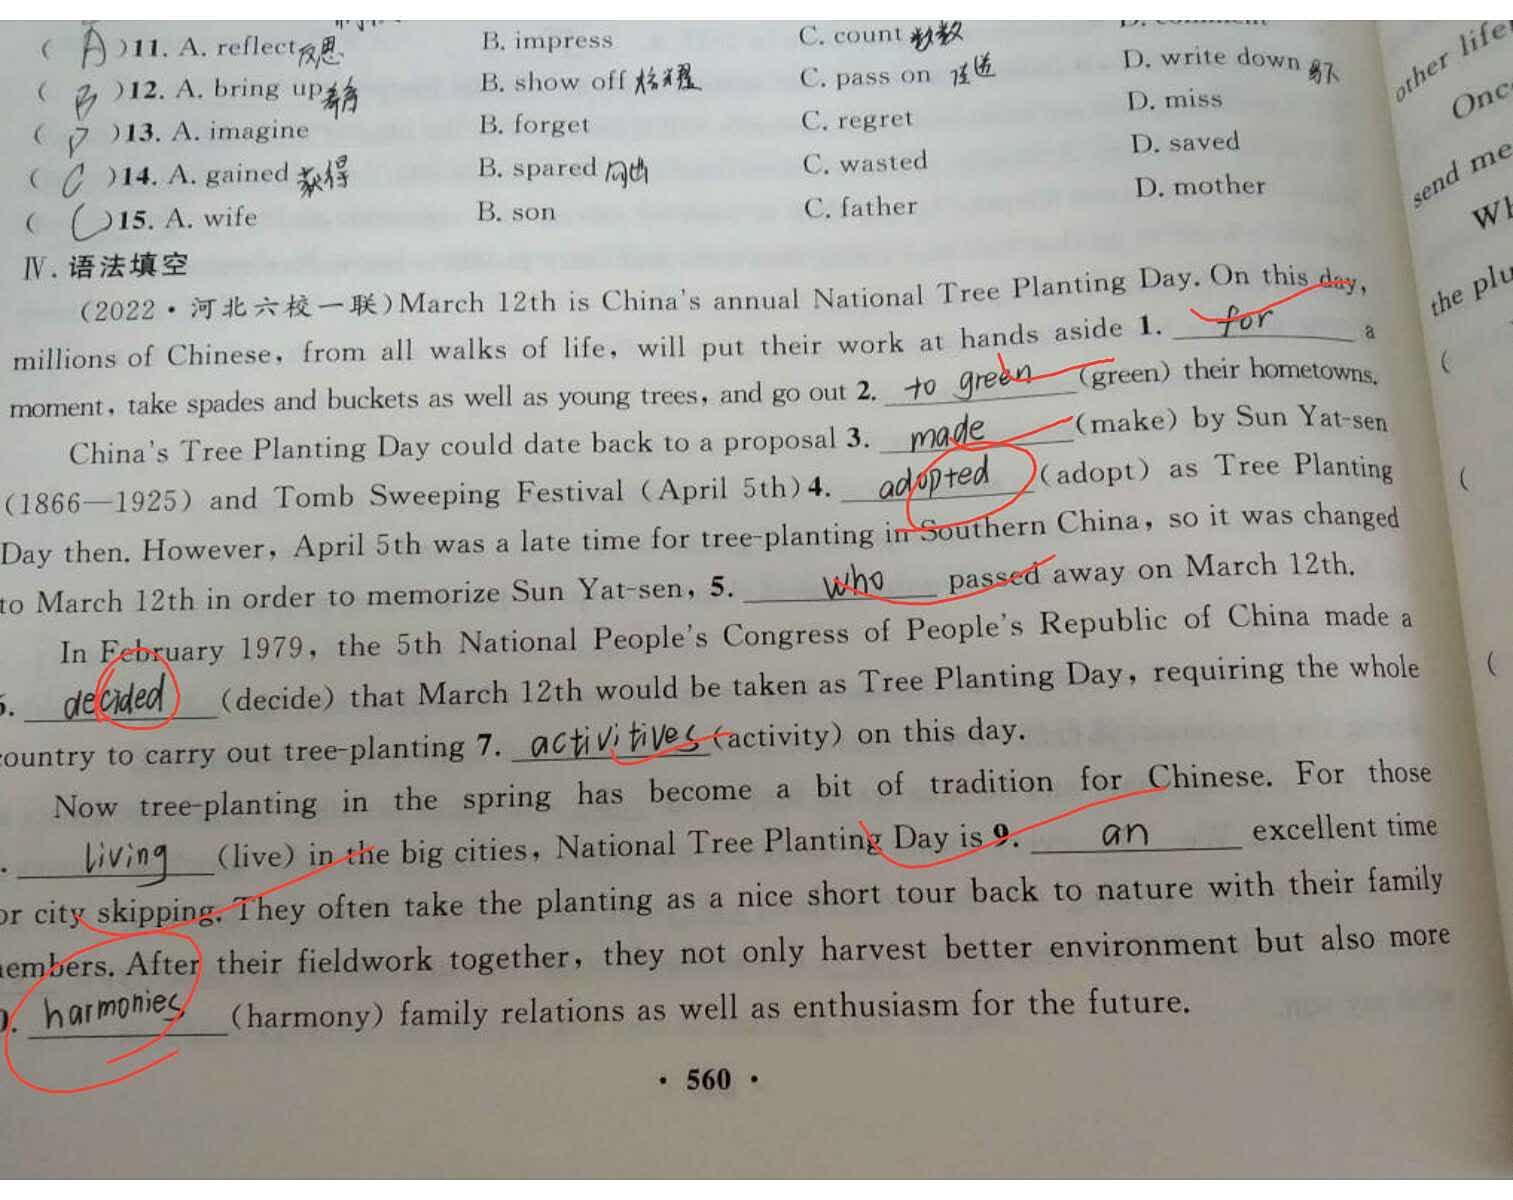 ( A )11. A. reflect反思 B. impress C. count 数数
( B )12. A. bring up养育 B. show off 炫耀 C. pass on 传递 D. write down 写下
( D )13. A. imagine B. forget C. regret D. miss
( C )14. A. gained 获得 B. spared C. wasted D. saved
( C )15. A. wife B. son C. father D. mother
Ⅳ. 语法填空
(2022·河北六校一联)March 12th is China's annual National Tree Planting Day. On this day,
millions of Chinese, from all walks of life, will put their work at hands aside 1. for a
moment, take spades and buckets as well as young trees, and go out 2. to green (green) their hometowns.
China's Tree Planting Day could date back to a proposal 3. made (make) by Sun Yat-sen
(1866—1925) and Tomb Sweeping Festival (April 5th) 4. adopted (adopt) as Tree Planting
Day then. However, April 5th was a late time for tree-planting in Southern China, so it was changed
to March 12th in order to memorize Sun Yat-sen, 5. who passed away on March 12th.
In February 1979, the 5th National People's Congress of People's Republic of China made a
decided (decide) that March 12th would be taken as Tree Planting Day, requiring the whole
country to carry out tree-planting 7. activitives (activity) on this day.
Now tree-planting in the spring has become a bit of tradition for Chinese. For those
living (live) in the big cities, National Tree Planting Day is 9. an excellent time
or city skipping. They often take the planting as a nice short tour back to nature with their family
embers. After their fieldwork together, they not only harvest better environment but also more
harmonies (harmony) family relations as well as enthusiasm for the future.
· 560 ·
other life
Onc
send me
Wh
the plu